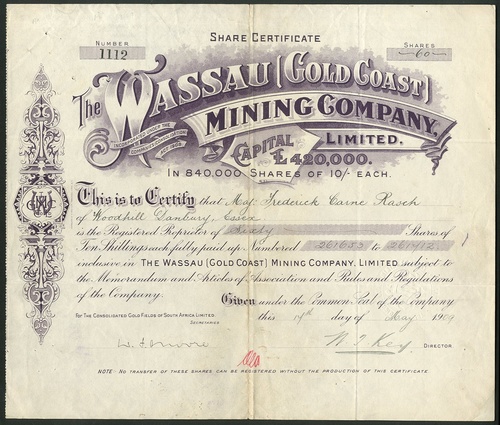 SHARE CERTIFICATE
NUMBER
1112
SHARES
60
The WASSAU (GOLD COAST)
INCORPORATED UNDER THE
MINING COMPANY,
LIMITED.
CAPITAL
£420,000.
IN 840,000 SHARES OF 10/- EACH.
This is to Certify that Maj: Frederick Carne Rasch
of Woodhill Danbury, Essex
is the Registered Proprietor of Sixty Shares of
Ten Shillings each fully paid up. Numbered 261353 to 261412
inclusive in THE WASSAU (GOLD COAST) MINING COMPANY, LIMITED subject to
the Memorandum and Articles of Association and Rules and Regulations
of the Company.
Given under the Common Seal of the Company
this 14th day of May 1909
FOR THE CONSOLIDATED GOLD FIELDS OF SOUTH AFRICA LIMITED.
SECRETARIES
DIRECTOR
NOTE:- NO TRANSFER OF THESE SHARES CAN BE REGISTERED WITHOUT THE PRODUCTION OF THIS CERTIFICATE